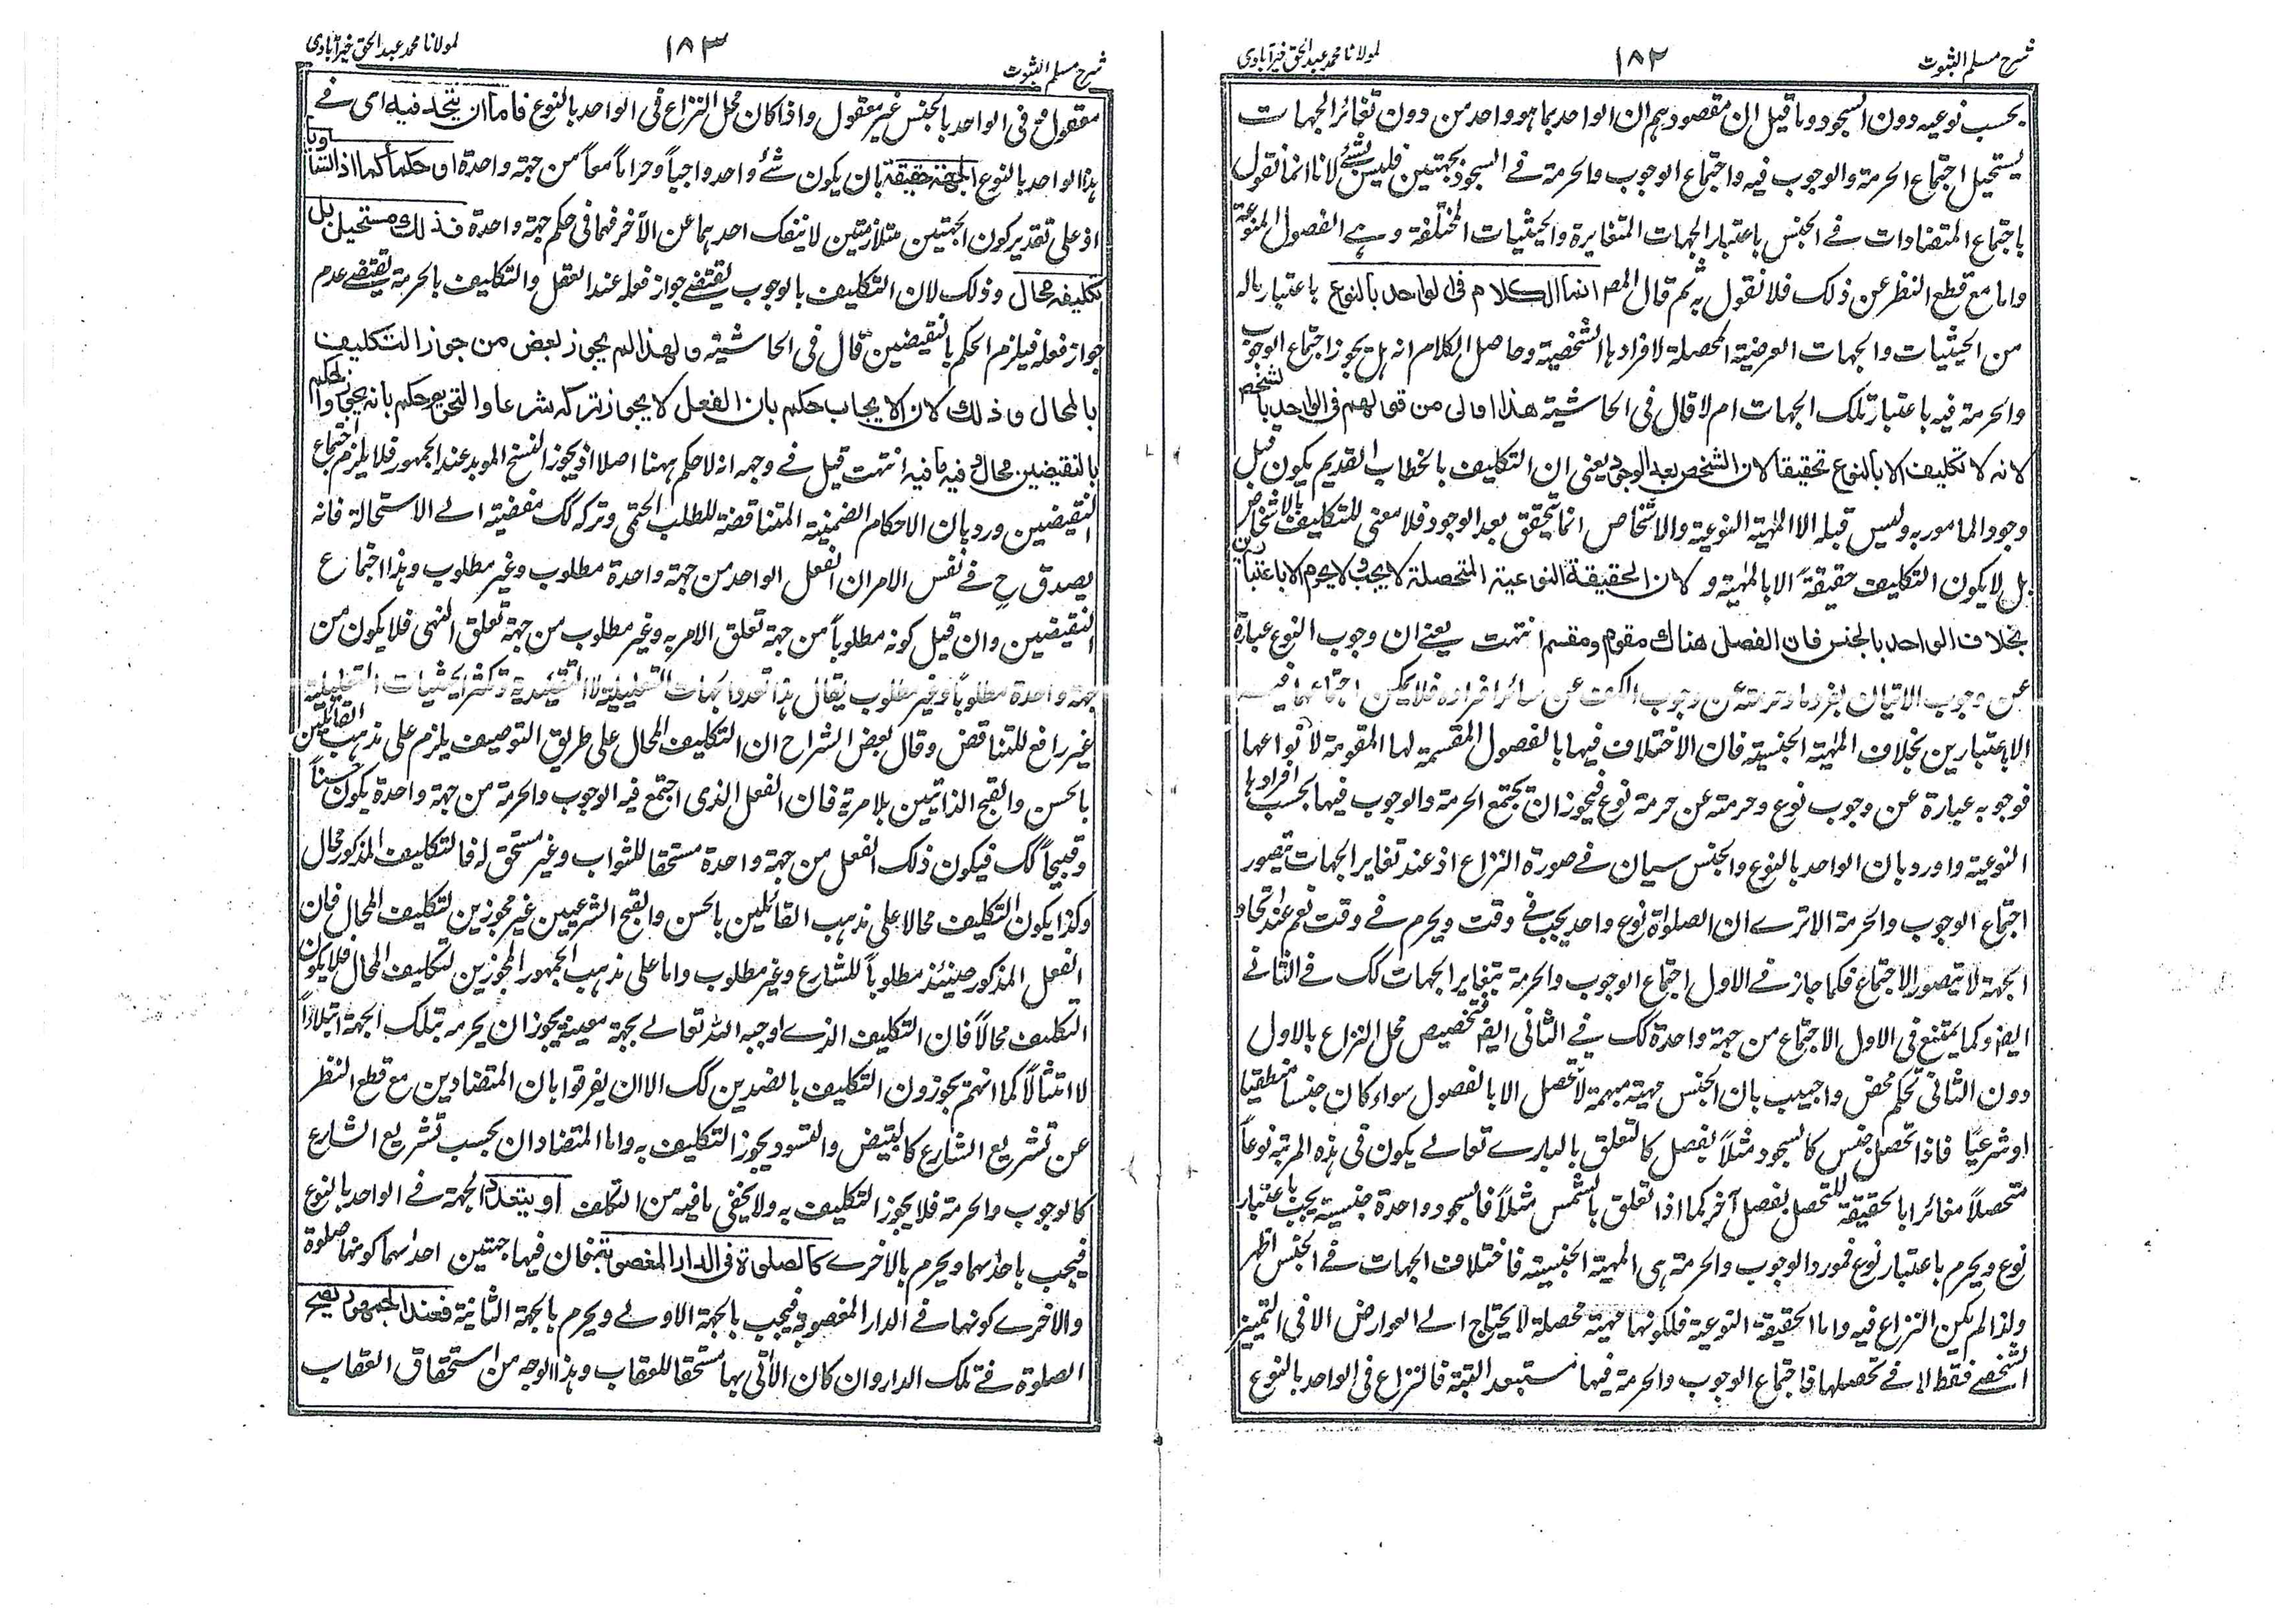 شرح مسلم الثبوت
١٨٢
لمولانا محمد عبد الحق خيرآبادى
بحسب نوعيه دون السجود وما قيل ان مقصودهم ان الواحد بما هو واحد من دون تغائر الجهات
يستحيل اجتماع الحرمة والوجوب فيه واجتماع الوجوب والحرمة فے السجود بجهتين فليس بشئے لانا انما نقول
باجتماع المتضادات فے الجنس باعتبار الجهات المتغايرة والحيثيات المختلفة وہے الفصول المنوعة
واما مع قطع النظر عن ذلك فلا نقول به ثم قال المصـ انما الكلام فى الواحد بالنوع باعتبار ماله
من الحيثيات والجهات العرضية المحصلة لافرادہا الشخصية وحاصل الكلام انه ہل يجوز اجتماع الوجوب
والحرمة فيه باعتبار تلك الجهات ام لا قال فى الحاشية هذا اولى من قولهم فى الواحد بالشخص
لانه لا تكليف الا بالنوع تحقيقا لان الشخص بعد الوجود يعنى ان التكليف بالخطاب القديم يكون قبل
وجود المامور به وليس قبله الا المہية النوعية والاشخاص انما تتحقق بعد الوجود فلا معنى للتكليف بالاشخاص
بل لا يكون التكليف حقيقةً الا بالمہية ولان الحقيقة النوعية المتحصلة لا يجب ولا يحرم الا باعتبارين
بخلاف الواحد بالجنس فان الفصل هناك مقوم ومقسم انتهت يعنے ان وجوب النوع عبارة
عن وجوب الاتيان بفرد ما وحرمته عن وجوب الكف عن سائر افراده فلا يمكن اجتماعهما فيه
الا باعتبارين بخلاف المہية الجنسية فان الاختلاف فيها بالفصول المقسمة لها المقومة لانواعها
فوجوبه عبارة عن وجوب نوع وحرمته عن حرمة نوع فيجوز ان يجتمع الحرمة والوجوب فيها بحسب افرادہا
النوعية واورد بان الواحد بالنوع والجنس سيان فے صورة النزاع اذ عند تغاير الجهات يتصور
اجتماع الوجوب والحرمة الا ترے ان الصلوٰة نوع واحد يجب فے وقت ويحرم فے وقت نعم عند اتحاد
الجهة لا يتصور الاجتماع فكما جاز فے الاول اجتماع الوجوب والحرمة بتغاير الجهات كك فے الثانے
ايضـ وكما يمتنع فى الاول الاجتماع من جهة واحدة كك فے الثانى ايضـ فتخصيص محل النزاع بالاول
دون الثانى تحكم محض واجيب بان الجنس مہية مبهمة لا تحصل الا بالفصول سواء كان جنسا منطقيا
او شرعيًا فاذا تحصل جنس كالسجود مثلاً بفصل كالتعلق بالبارے تعالے يكون فى ہذه المرتبة نوعاً
متحصلاً مغائرا بالحقيقة للمتحصل بفصل آخر كما اذا تعلق بالشمس مثلاً فالسجود واحدة جنسية يجب باعتبار
نوع ويحرم باعتبار نوع فمورد الوجوب والحرمة ہى المہية الجنسية فاختلاف الجهات فے الجنس اظهر
ولذا لم يكن النزاع فيه واما الحقيقة النوعية فلكونها مہية محصلة لا يحتاج الے العوارض الا فى التميز
الشخصے فقط لا فے تحصلها فاجتماع الوجوب والحرمة فيها مستبعد البتة فالنزاع فى الواحد بالنوع
شرح مسلم الثبوت
١٨٣
لمولانا محمد عبد الحق خيرآبادى
معقول وفى الواحد بالجنس غير معقول واذا كان محل النزاع فى الواحد بالنوع فاما ان يتحد فيه اى فے
ہذا الواحد بالنوع الجهة حقيقة بان يكون شئے واحد واجباً وحراماً معاً من جهة واحدة او حكماً كما اذا تساويا
اذ على تقدير كون الجهتين متلازمتين لا ينفك احدہما عن الآخر فهما فى حكم جهة واحدة فذلك مستحيل بل
تكليفه محال وذلك لان التكليف بالوجوب يقتضے جواز فعله عند العقل والتكليف بالحرمة يقتضے عدم
جواز فعله فيلزم الحكم بالنقيضين قال فى الحاشية ولهذا لم يجوز بعض من جوز التكليف
بالمحال وذلك لان الايجاب حكم بان الفعل لا يجوز تركه شرعا والتحريم حكم بانه يجوز والحكم
بالنقيضين محال وفيه ما فيه انتهت قيل فے وجهه انه لا حكم ہهنا اصلا اذ يجوز النسخ الموبد عند الجمهور فلا يلزم اجتماع
النقيضين ورد بان الاحكام الضمنية المتناقضة للطلب الحتمى وتركه كك مفضية الے الاستحالة فانه
يصدق ح فے نفس الامر ان الفعل الواحد من جهة واحدة مطلوب وغير مطلوب وہذا اجتماع
النقيضين وان قيل كونه مطلوباً من جهة تعلق الامر به وغير مطلوب من جهة تعلق النهى فلا يكون من
جهة واحدة مطلوباً وغير مطلوب يقال ہذا تعدد الجهات التعليلية لا التقييدية وتكثر الحيثيات التعليلية
غير رافع للتناقض وقال بعض الشراح ان التكليف المحال على طريق التوصيف يلزم على مذہب القائلين
بالحسن والقبح الذاتيين بلا مرية فان الفعل الذى اجتمع فيه الوجوب والحرمة من جهة واحدة يكون حسناً
وقبيحاً كك فيكون ذلك الفعل من جهة واحدة مستحقا للثواب وغير مستحق له فالتكليف المذكور محال
وكذا يكون التكليف محالا على مذہب القائلين بالحسن والقبح الشرعيين غير مجوزين لتكليف المحال فان
الفعل المذكور حينئذ مطلوباً للشارع وغير مطلوب واما على مذہب الجمهور المجوزين لتكليف المحال فلا يكون
التكليف محالاً فان التكليف الذے اوجبه الله تعالے بجهة معينة يجوز ان يحرمه بتلك الجهة ابتلاءً
لا امتثالاً كما انهم يجوزون التكليف بالضدين كك الا ان يفرقوا بان المتضادين مع قطع النظر
عن تشريع الشارع كالتبيض والتسود يجوز التكليف به واما المتضادان بحسب تشريع الشارع
كالوجوب والحرمة فلا يجوز التكليف به ولا يخفى ما فيه من التكلف او يتعدد الجهة فے الواحد بالنوع
فيجب باحدٰہما ويحرم بالاخرے كالصلوة فى الدار المغصوبة فان فيها جهتين احدٰہما كونها صلوة
والاخرے كونها فے الدار المغصوبة فيجب بالجهة الاولے ويحرم بالجهة الثانية فعند الجمهور يصح
الصلوة فے تلك الدار وان كان الآتى بها مستحقا للعقاب وہذا الوجه من استحقاق العقاب